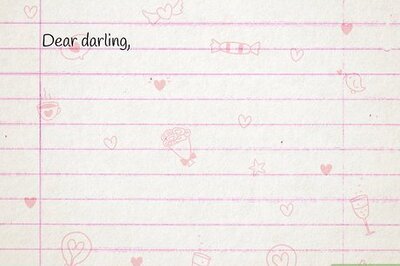 Dear darling,